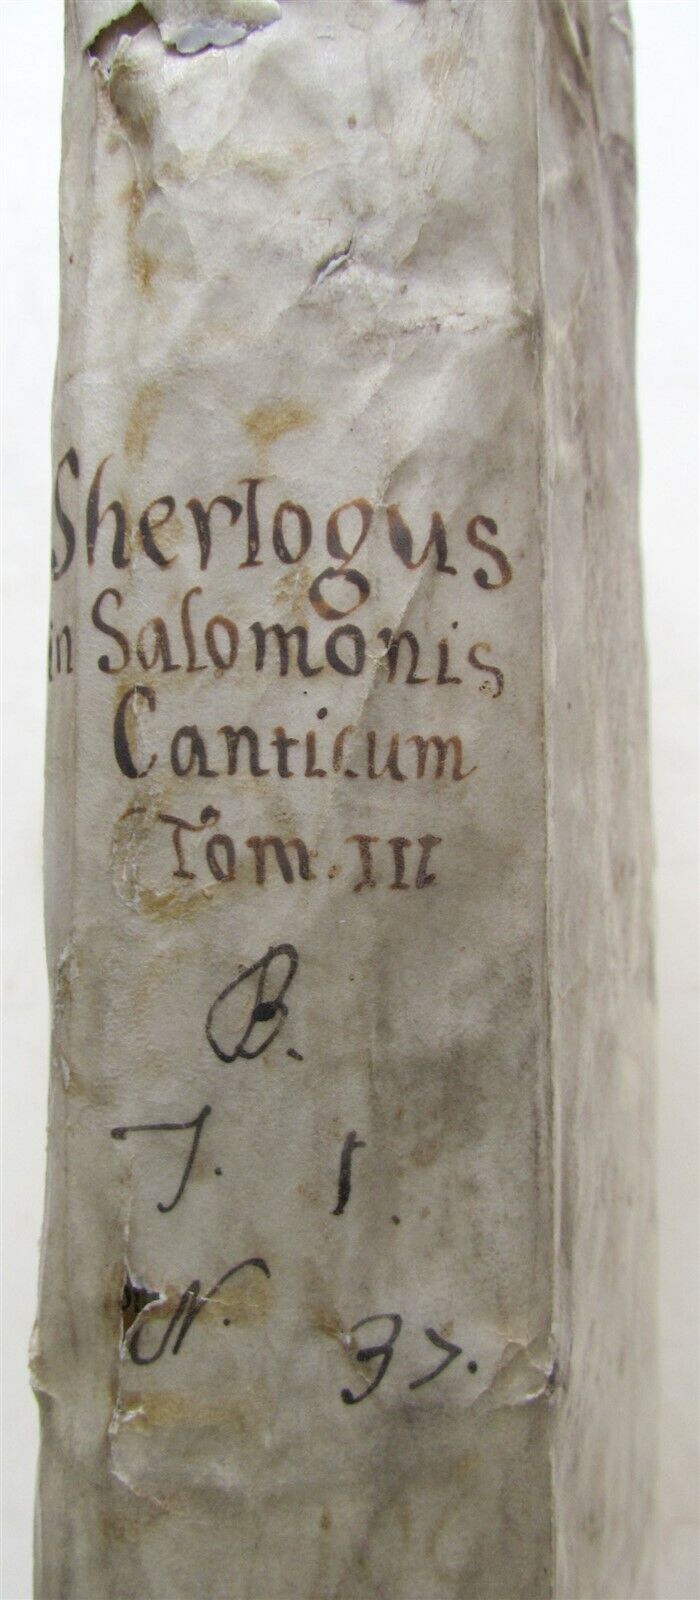 Sherlogus
in Salomonis
Canticum
Tom. III
B.
J. 1.
N. 37.